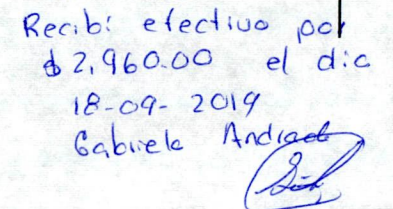 Recibí efectivo por
$2,960.00 el dia
18-09-2019
Gabriela Andrade